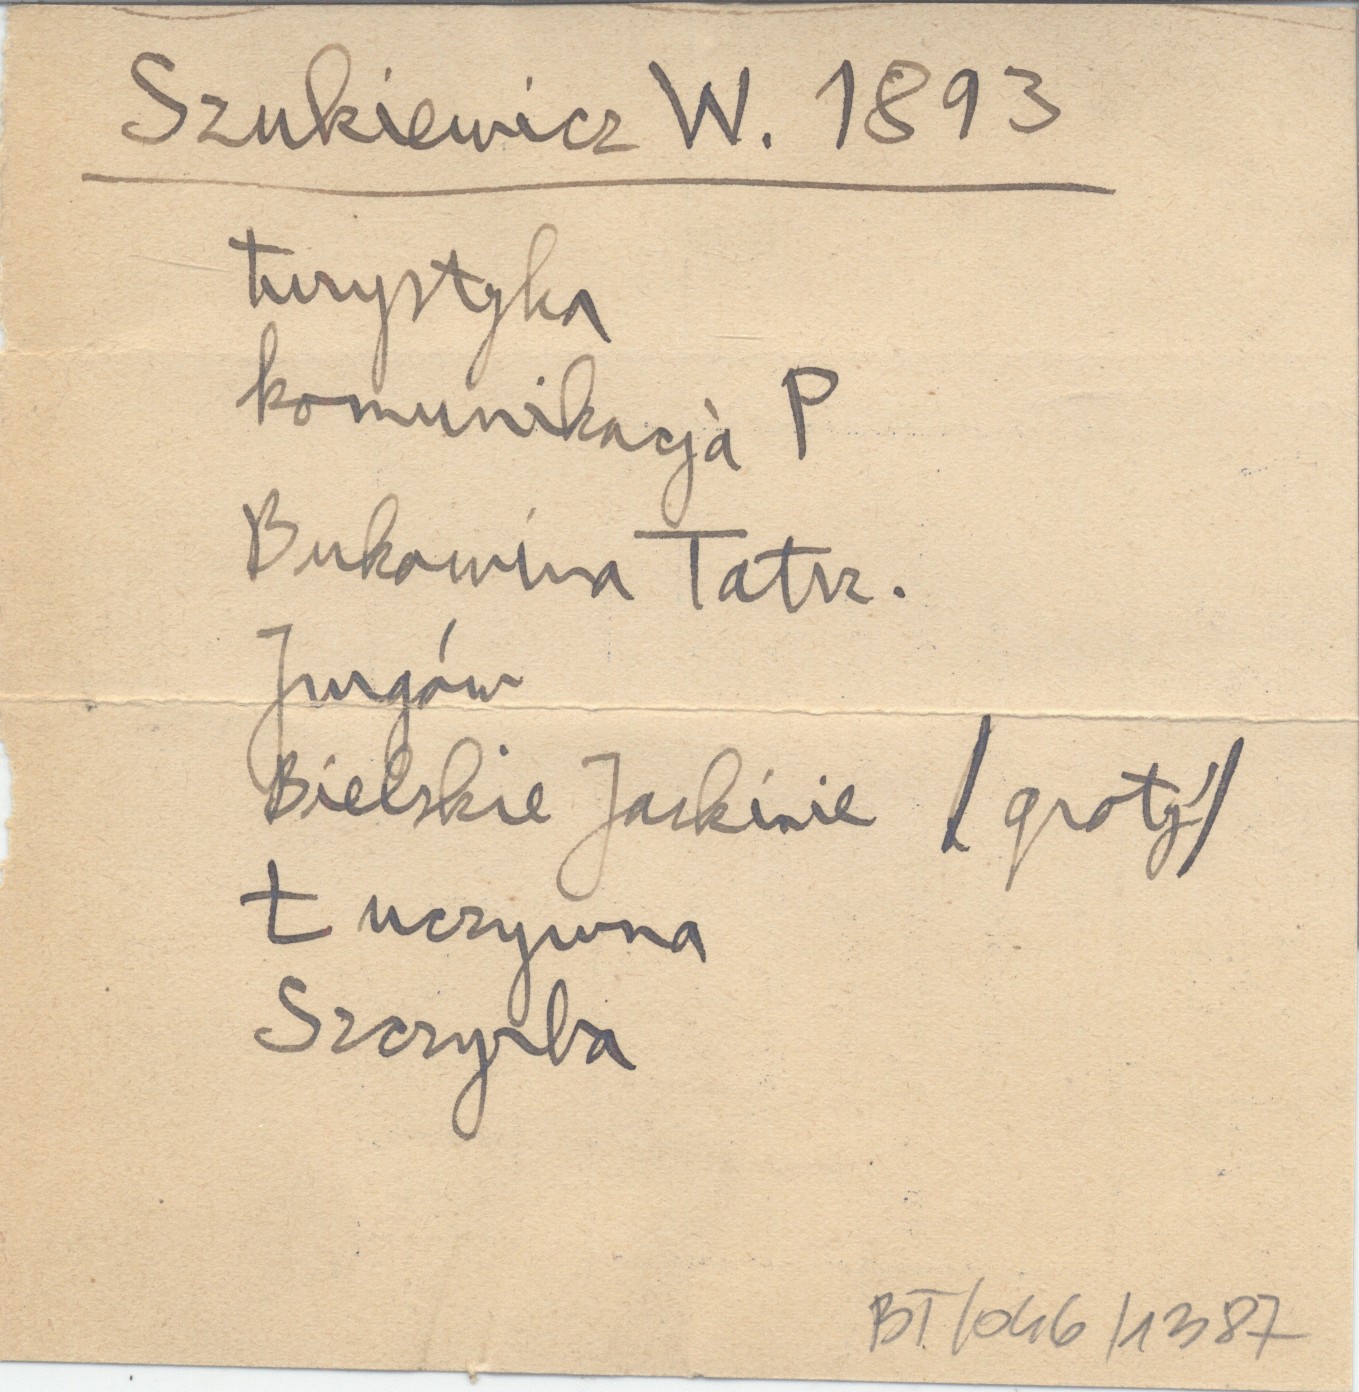 Szukiewicz W. 1893
turystyka
komunikacja P
Bukowina Tatrz.
Jurgów
Bielskie Jaskinie /groty/
Łuczywna
Szczyrba
BT/046/1387